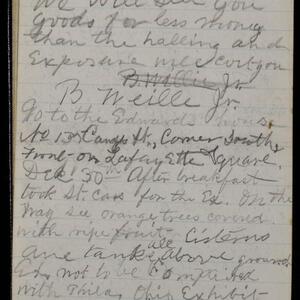 We will sell you
goods for less money
than the halling and
Exposure will cost you
B. Weille Jr.
B Weille Jr.
Go to the Edwards House
No 13 Camp St, Corner South
Front on Lafayette Square.
Dec 30th After breakfast
took St. cars for the Ex. On the
way see orange trees covered
with ripe fruit. Cisterns
are tanks all above ground
Ex. not to be compared
with Phila, Ohio Exhibit